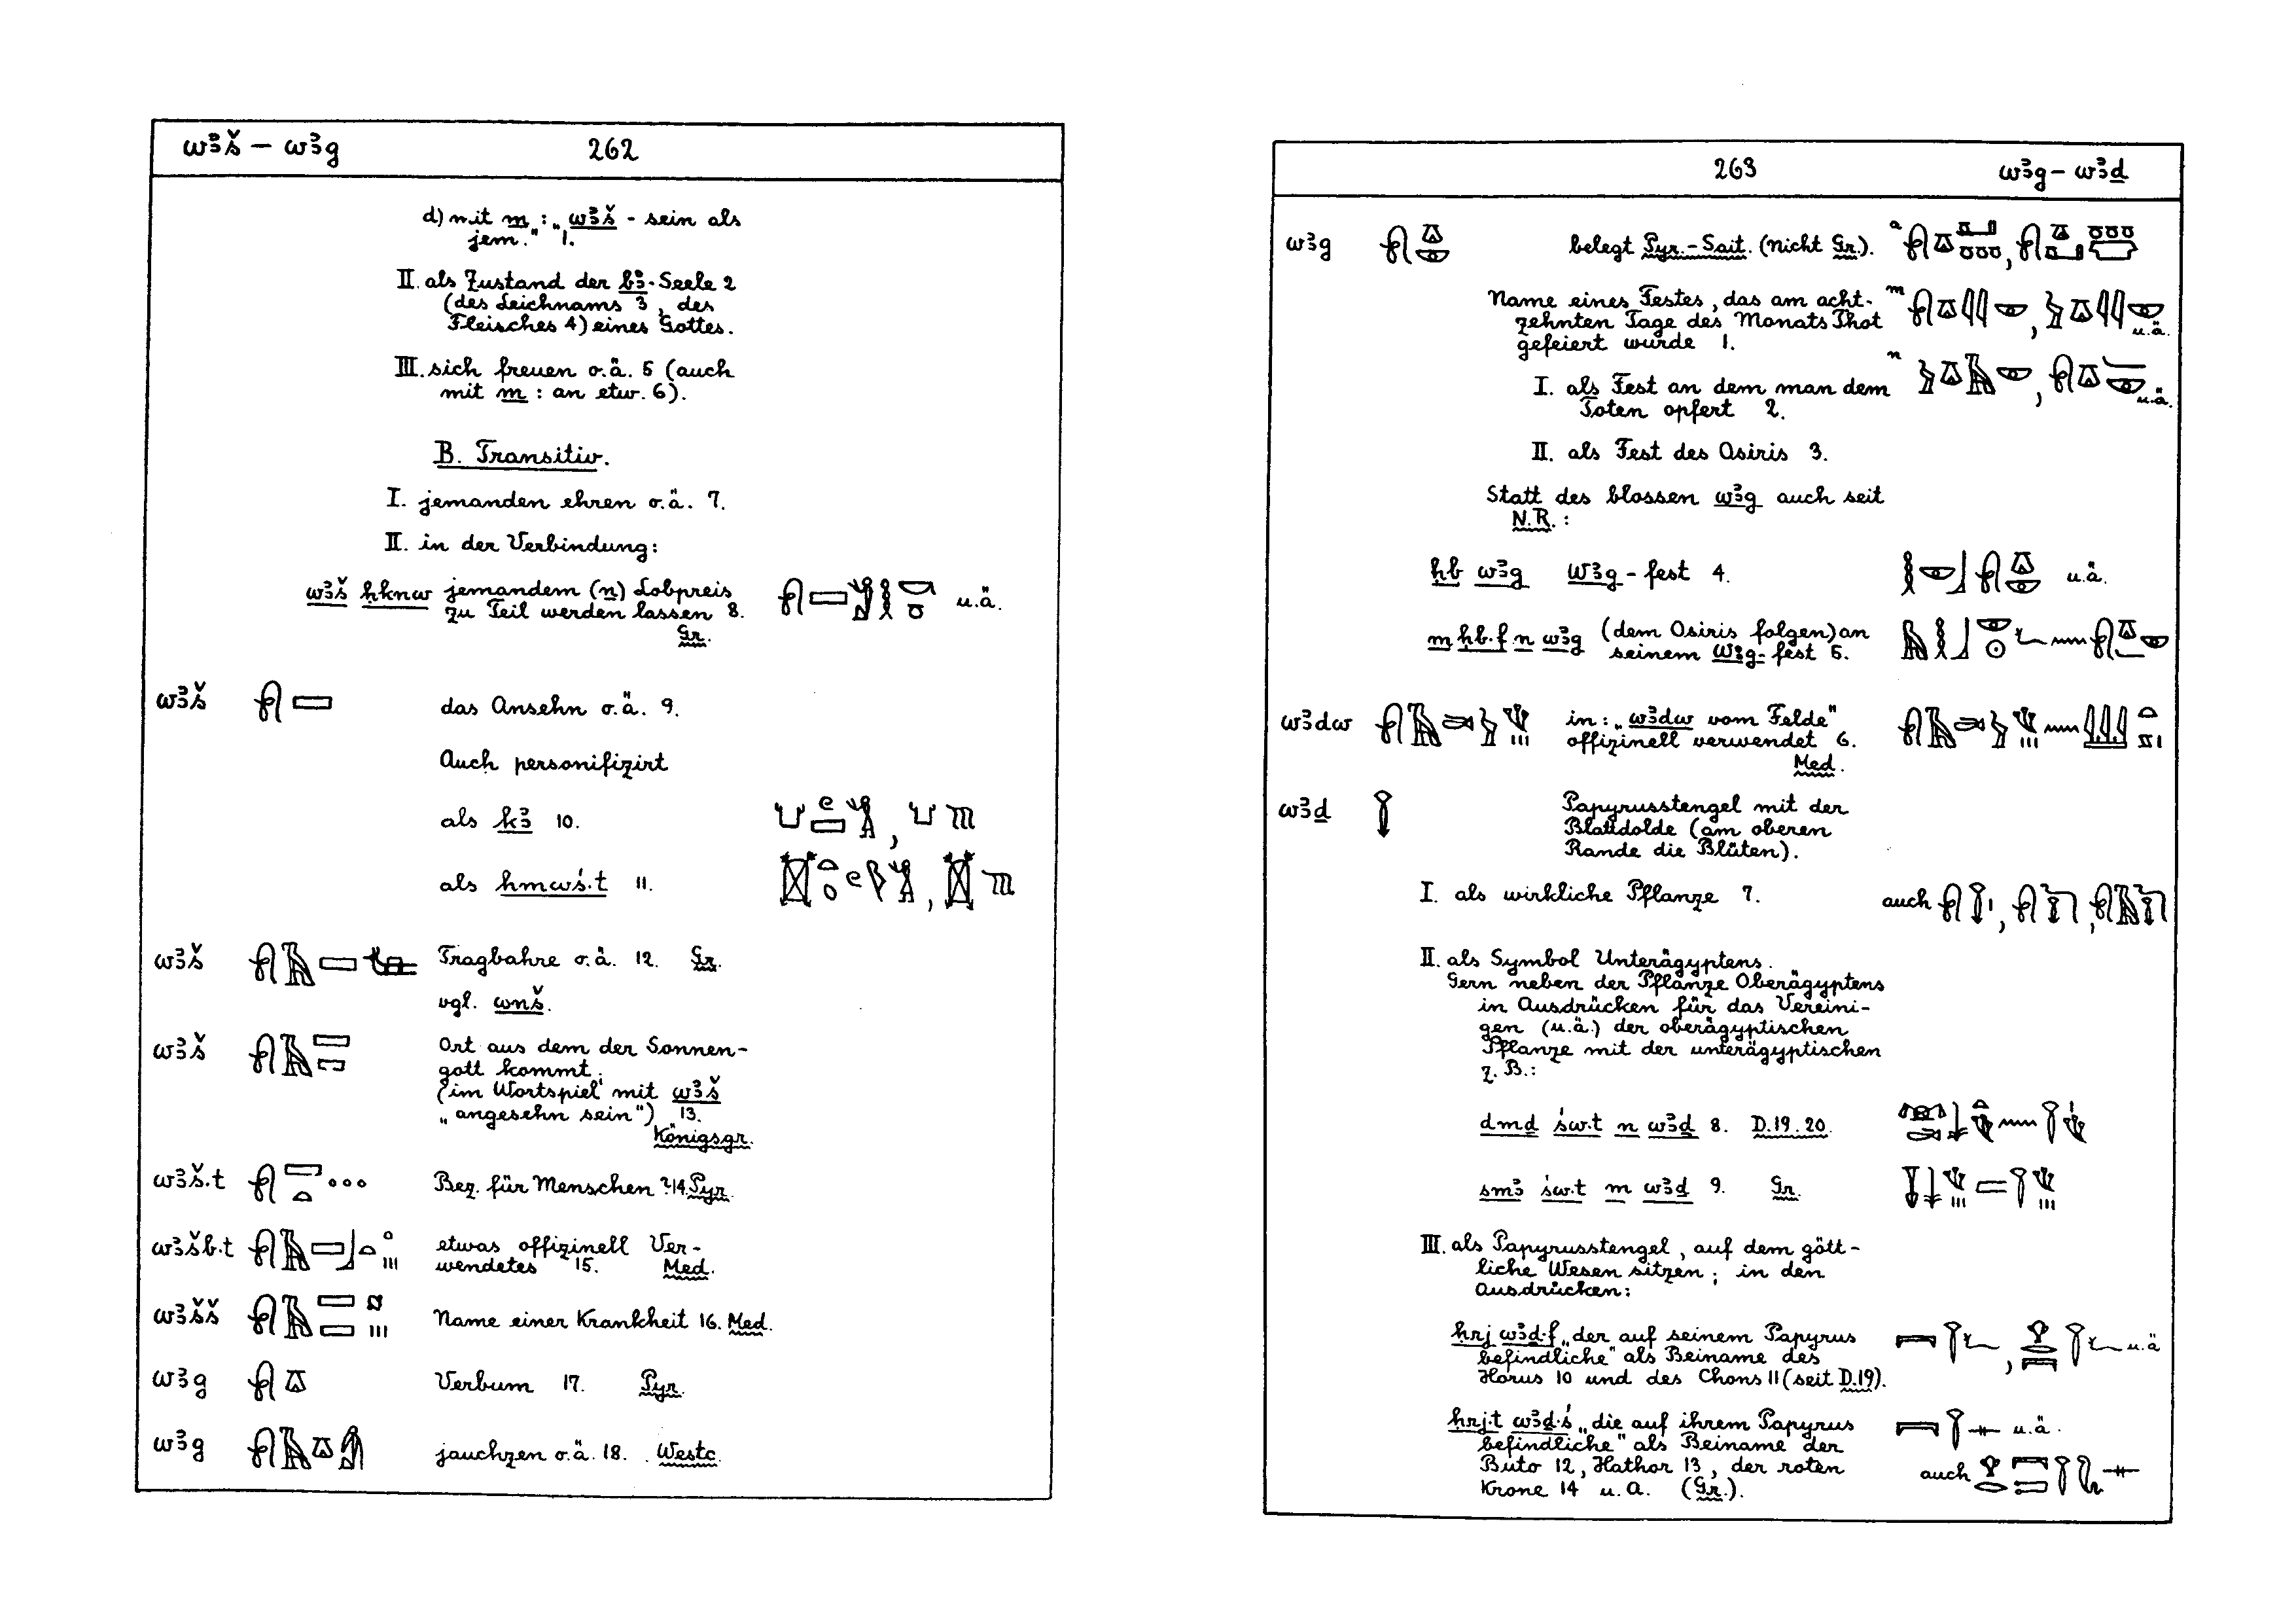 wꜣš – wꜣg 262
d) mit m : „wꜣš - sein als
jem." 1.
II. als Zustand der bꜣ-Seele 2
(des Leichnams 3, des
Fleisches 4) eines Gottes.
III. sich freuen o.ä. 5 (auch
mit m : an etw. 6).
B. Transitiv.
I. jemanden ehren o.ä. 7.
II. in der Verbindung:
wꜣš ḥknw jemandem (n) Lobpreis u.ä.
zu Teil werden lassen 8.
Gr.
wꜣš das Ansehn o.ä. 9.
Auch personifizirt
als kꜣ 10.
als ḥmwś.t 11.
wꜣš Tragbahre o.ä. 12. Gr.
vgl. wnš.
wꜣš Ort aus dem der Sonnen-
gott kommt
(im Wortspiel mit wꜣš
„angesehn sein") 13.
Königsgr.
wꜣš.t Bez. für Menschen? 14. Pyr.
wꜣšb.t etwas offizinell Ver-
wendetes 15. Med.
wꜣšš Name einer Krankheit 16. Med.
wꜣg Verbum 17. Pyr.
wꜣg jauchzen o.ä. 18. Westc.
263 wꜣg – wꜣḏ
wꜣg belegt Pyr.-Sait. (nicht Gr.). a
Name eines Festes, das am acht- m
zehnten Tage des Monats Thot u.ä.
gefeiert wurde 1.
n
I. als Fest an dem man dem
Toten opfert 2. u.ä.
II. als Fest des Osiris 3.
Statt des blossen wꜣg auch seit
N.R.:
ḥb wꜣg Wꜣg-fest 4. u.ä.
m ḥb.f n wꜣg (dem Osiris folgen) an
seinem Wꜣg-fest 5.
wꜣdw in: „wꜣdw vom Felde"
offizinell verwendet 6.
Med.
wꜣḏ Papyrusstengel mit der
Blattdolde (am oberen
Rande die Blüten).
I. als wirkliche Pflanze 7. auch
II. als Symbol Unterägyptens.
Gern neben der Pflanze Oberägyptens
in Ausdrücken für das Vereini-
gen (u.ä.) der oberägyptischen
Pflanze mit der unterägyptischen
z.B.:
dmḏ św.t n wꜣḏ 8. D.19.20.
smꜣ św.t m wꜣḏ 9. Gr.
III. als Papyrusstengel, auf dem gött-
liche Wesen sitzen; in den
Ausdrücken:
ḥrj wꜣḏ.f „der auf seinem Papyrus
befindliche" als Beiname des u.ä
Horus 10 und des Chons 11 (seit D.19).
ḥrj.t wꜣḏ.ś „die auf ihrem Papyrus u.ä.
befindliche" als Beiname der
Buto 12, Hathor 13, der roten auch
Krone 14 u.A. (Gr.).